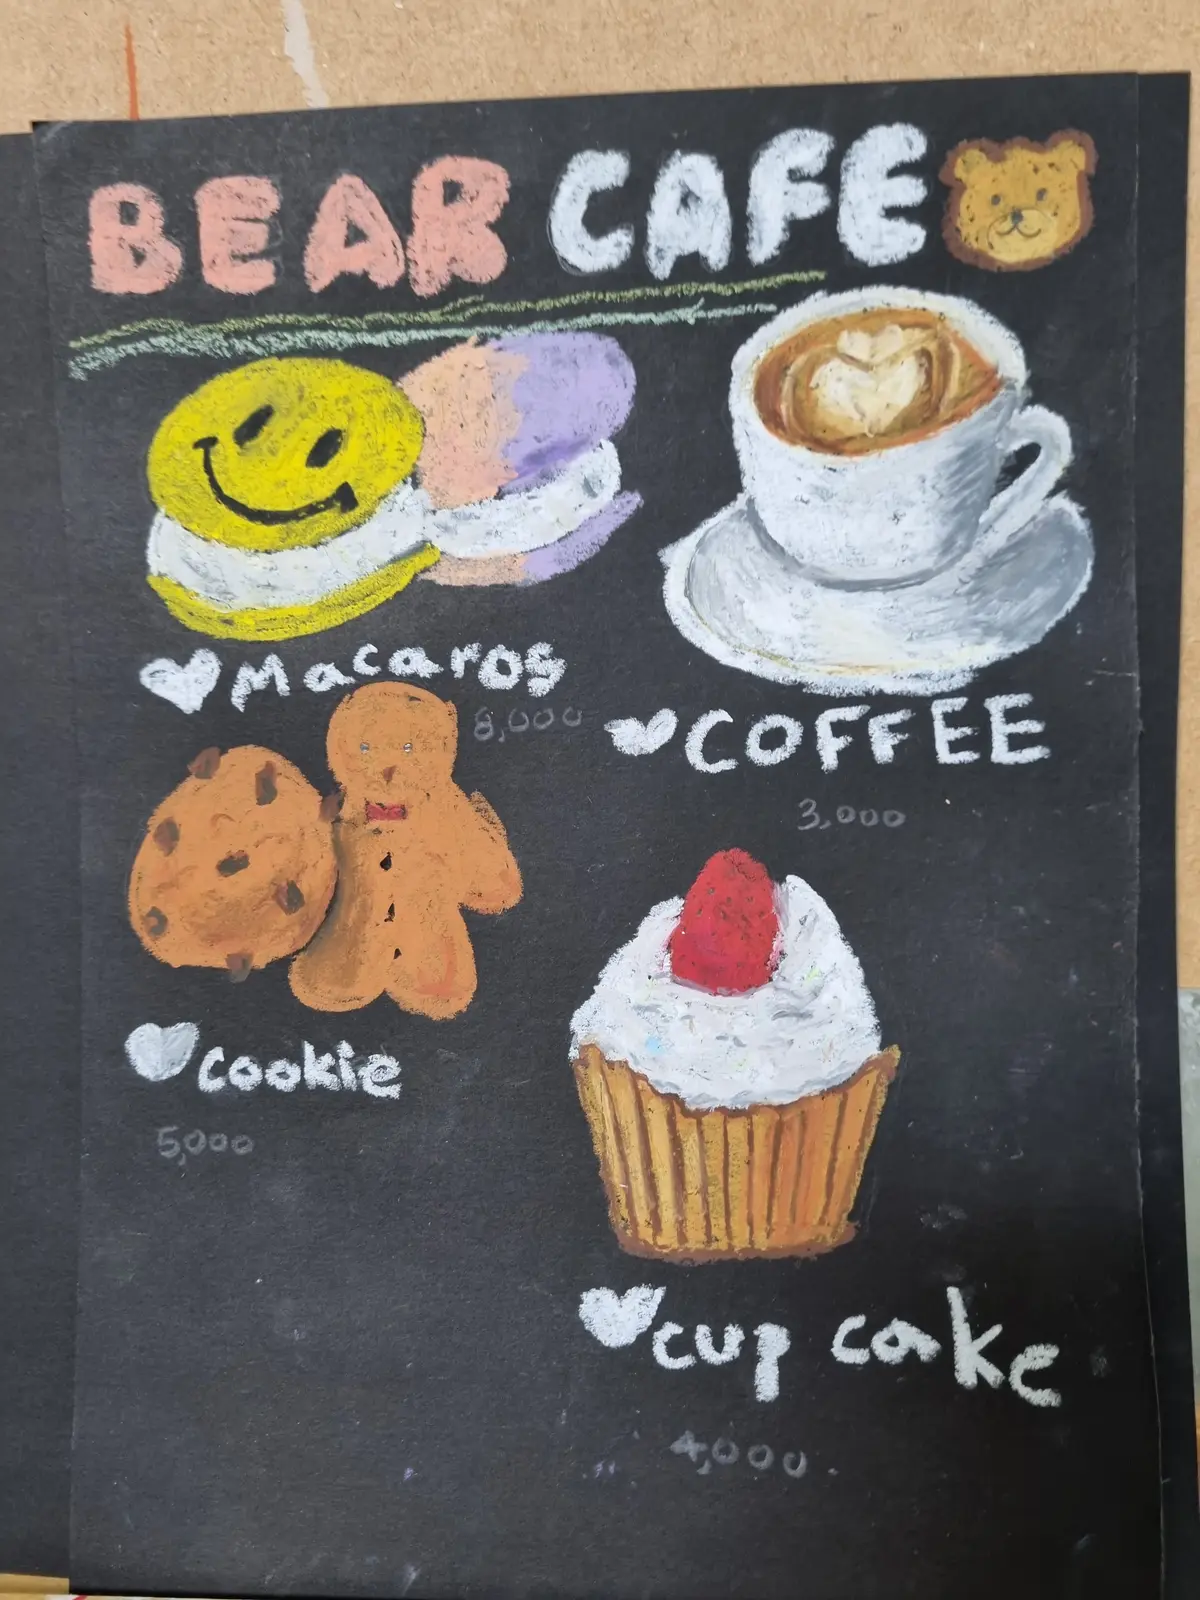 BEAR CAFE
Macaros
8,000
COFFEE
3,000
cookie
5,000
cup cake
4,000